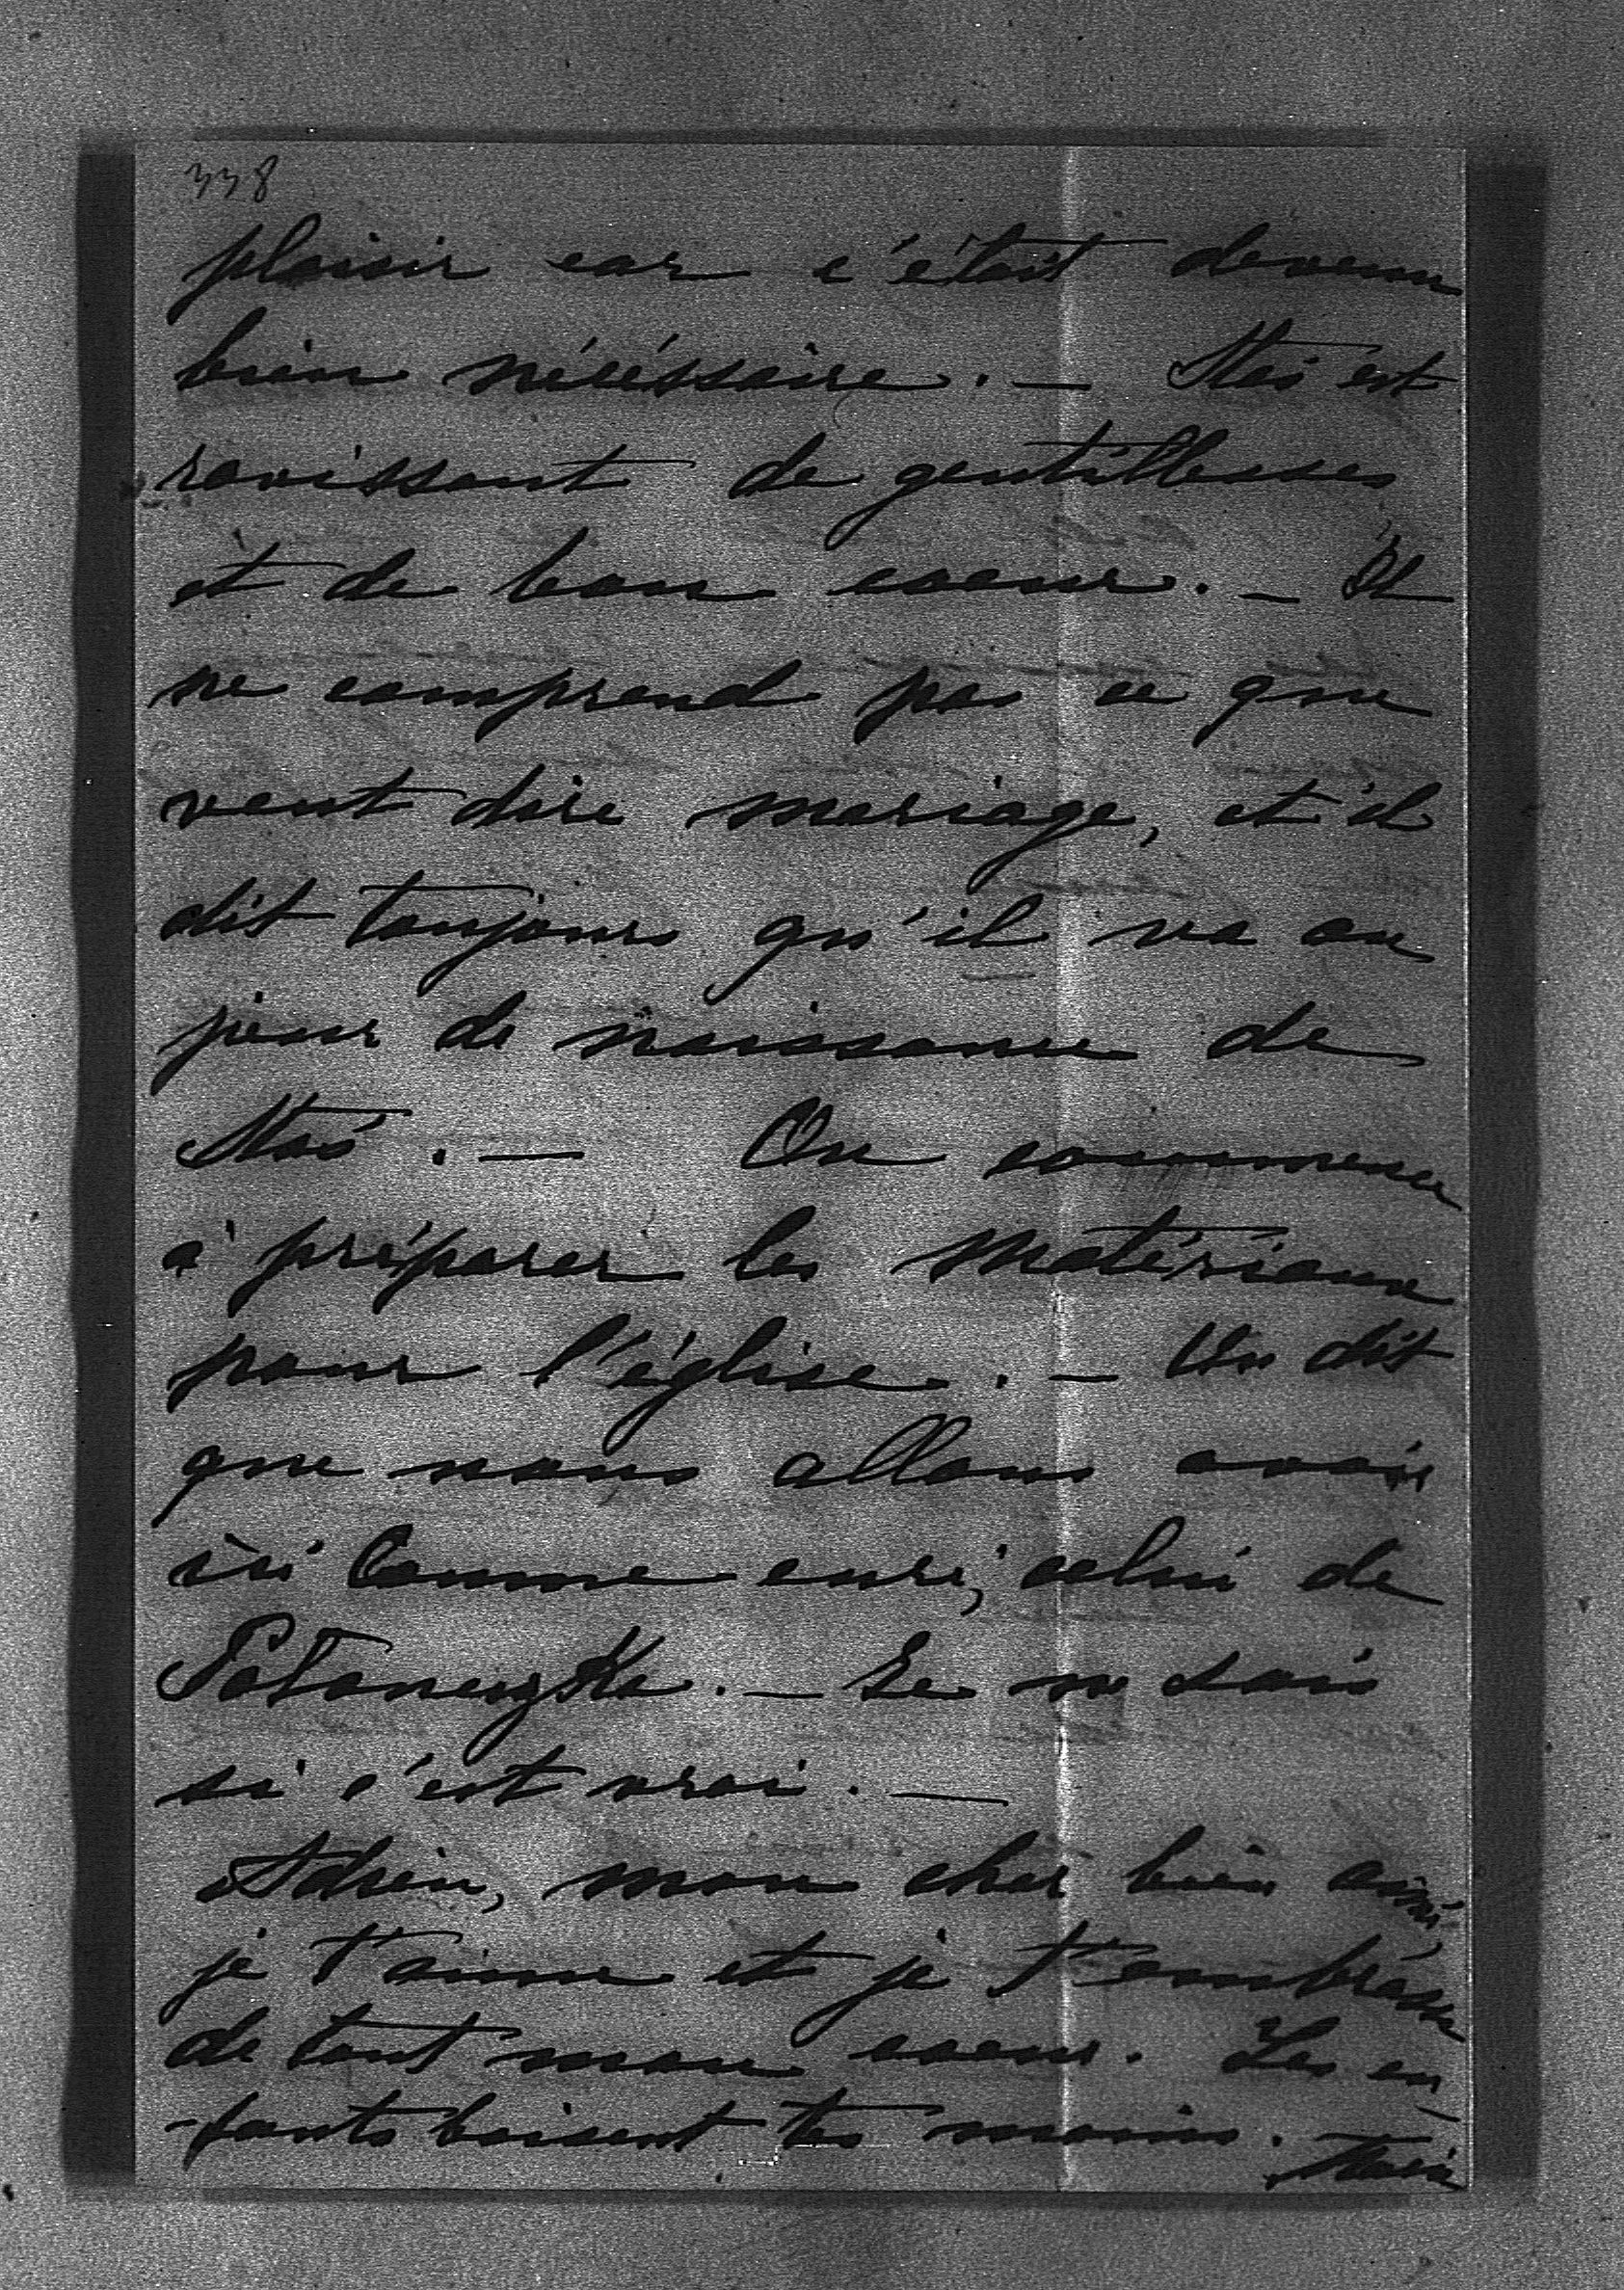 338
plaisir car c'était devenu
bien nécéssaire. — Staś est
ravissant de gentillesses
et de bon coeur. — Il
ne comprend pas ce que
veut dire mariage, et il
dit toujours qu'il va au
jour de naissance de
Staś. — On commence
à préparer les matériaux
pour l'église. — On dit
que nous allons avoir
ici comme curé, celui de
— Je ne sais
si c'est vrai. —
Adzin, mon cher bien aimé,
je t'aime et je t'embrasse
de tout mon coeur. Les en-
-fants baisent tes mains.